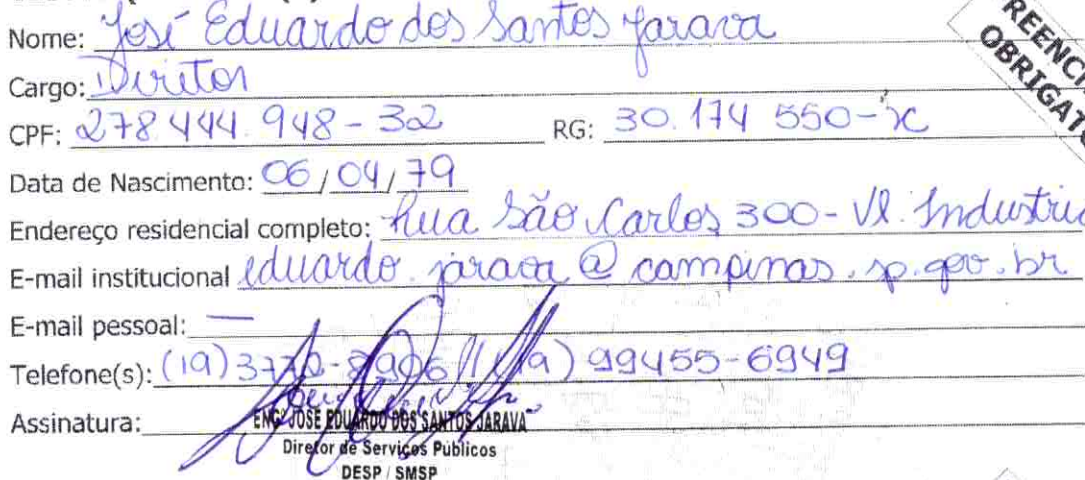 Nome: José Eduardo dos Santos Jarava
PREENCH
OBRIGATÓ
Cargo: Diretor
CPF: 278.444.948-32 RG: 30.174 550-x
Data de Nascimento: 06/04/79
Endereço residencial completo: Rua São Carlos 300 - Vl. Industria
E-mail institucional eduardo.jarava@campinas.sp.gov.br
E-mail pessoal: —
Telefone(s): (19) 3770-8906 // (19) 99455-6949
Assinatura:
ENGº JOSÉ EDUARDO DOS SANTOS JARAVA
Diretor de Serviços Públicos
DESP / SMSP